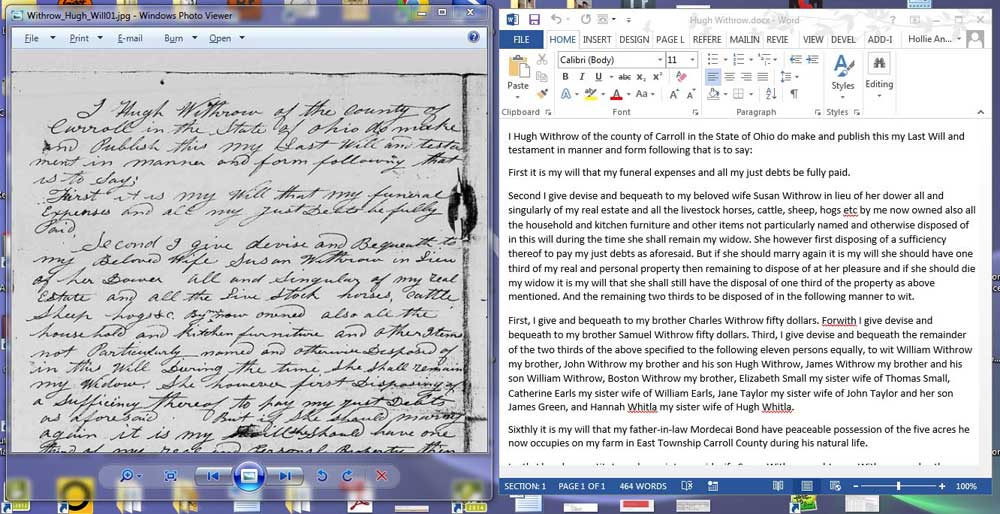 Withrow_Hugh_Will01.jpg - Windows Photo Viewer
File Print E-mail Burn Open
I Hugh Withrow of the county of
Carroll in the State of Ohio do make
and Publish this my Last Will and testa
ment in manner and form following that
is to Say;
First it is my Will that my funeral
Expenses and all my just Debts be fully
Paid
Second I give devise and Bequeath to
my Beloved Wife Susan Withrow in Lieu
of her Dower all and Singular of my real
Estate and all the Live Stock horses, Cattle
Sheep hogs &c. By now owned also all the
house hold and Kitchen furniture and other Items
not Particularly named and otherwise Disposed of
in this Will During the time She Shall remain
my Widow. She however first Disposing of
a Sufficiency thereof to pay my just Debts
as aforesaid But if She Should marry
again it is my Will She Should have one
third of my real and Personal Property then
Hugh Withrow.docx - Word
FILE HOME INSERT DESIGN PAGE L REFERE MAILIN REVIE VIEW DEVEL ADD-I Hollie An...
Calibri (Body) 11
Paste
B I U abc x₂ x²
A Aa A A
Styles Editing
Clipboard Font Paragraph Styles
I Hugh Withrow of the county of Carroll in the State of Ohio do make and publish this my Last Will and
testament in manner and form following that is to say:
First it is my will that my funeral expenses and all my just debts be fully paid.
Second I give devise and bequeath to my beloved wife Susan Withrow in lieu of her dower all and
singularly of my real estate and all the livestock horses, cattle, sheep, hogs etc by me now owned also all
the household and kitchen furniture and other items not particularly named and otherwise disposed of
in this will during the time she shall remain my widow. She however first disposing of a sufficiency
thereof to pay my just debts as aforesaid. But if she should marry again it is my will she should have one
third of my real and personal property then remaining to dispose of at her pleasure and if she should die
my widow it is my will that she shall still have the disposal of one third of the property as above
mentioned. And the remaining two thirds to be disposed of in the following manner to wit.
First, I give and bequeath to my brother Charles Withrow fifty dollars. Forwith I give devise and
bequeath to my brother Samuel Withrow fifty dollars. Third, I give devise and bequeath the remainder
of the two thirds of the above specified to the following eleven persons equally, to wit William Withrow
my brother, John Withrow my brother and his son Hugh Withrow, James Withrow my brother and his
son William Withrow, Boston Withrow my brother, Elizabeth Small my sister wife of Thomas Small,
Catherine Earls my sister wife of William Earls, Jane Taylor my sister wife of John Taylor and her son
James Green, and Hannah Whitla my sister wife of Hugh Whitla.
Sixthly it is my will that my father-in-law Mordecai Bond have peaceable possession of the five acres he
now occupies on my farm in East Township Carroll County during his natural life.
SECTION: 1 PAGE 1 OF 1 464 WORDS 100%